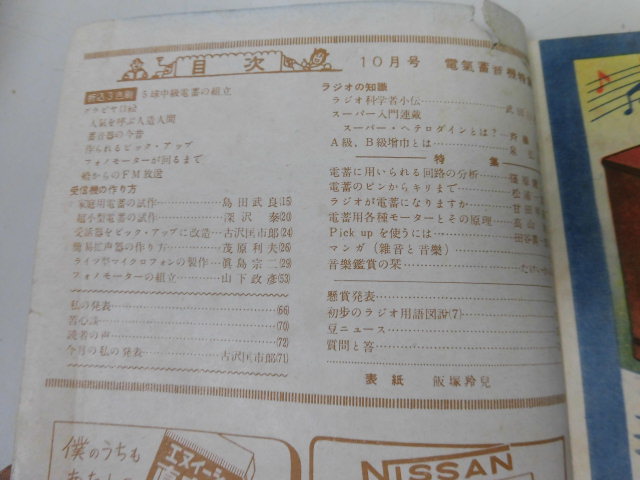 目次
10月号 電氣蓄音機特
折込3色刷 5球中級電蓄の組立
アラビヤ日記
人気を呼ぶ人造人間
蓄音器の今昔
作られるピック・アップ
フォノモーターが回るまで
船からのFM放送
受信機の作り方
家庭用電蓄の試作 島田武良(15)
超小型電蓄の試作 深沢泰(20)
受話器をピック・アップに改造 古沢匡市郎(24)
簡易拡声器の作り方 茂原利夫(26)
ライツ型マイクロフォンの製作 眞島宗二(29)
フォノモーターの組立 山下政彦(53)
私の発表 (66)
苦心談 (70)
読者の声 (72)
今月の私の発表 古沢匡市郎(71)
ラジオの知識
ラジオ科学者小伝 武
スーパー入門連蔵
スーパー・ヘテロダインとは? 斉藤
A級、B級増巾とは
特集
電蓄に用いられる回路の分析
電蓄のピンからキリまで 松浦
ラジオが電蓄になりますか 甘田
電蓄用各種モーターとその原理 高山
Pick upを使うには
マンガ(雑音と音樂)
音樂鑑賞の栞
懸賞発表
初歩のラジオ用語図説(7)
豆ニュース
質問と答
表紙 飯塚羚兒
僕のうちも
エヌイーシー
NISSAN